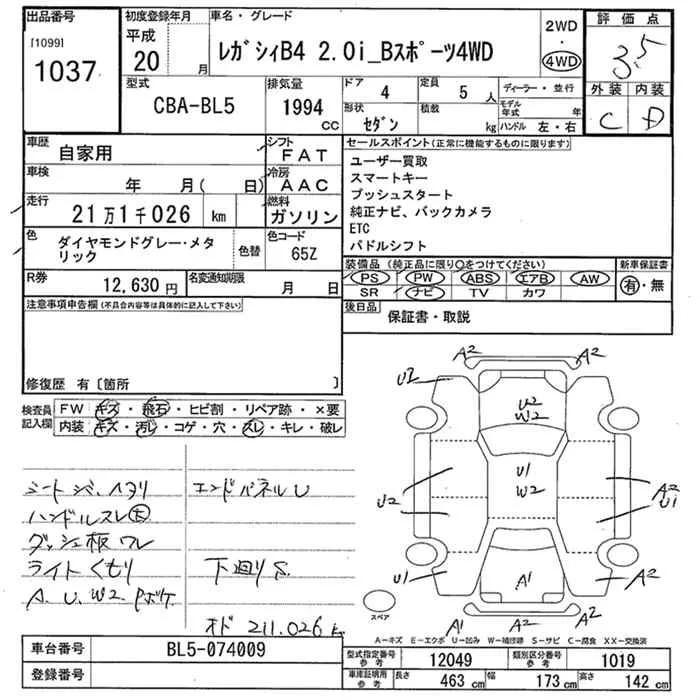 出品番号
[1099]
1037
初度登録年月
平成
20 月
車名・グレード
レガシィB4 2.0i_Bスポーツ4WD
2WD
・
4WD
評価点
3.5
外装 内装
C D
型式
CBA-BL5
排気量
1994 CC
ドア 4
定員 5 人
形状 セダン
積載 kg
ディーラー・並行
モデル年式 年
ハンドル 左・右
車歴 自家用
シフト FAT
車検 年 月( 日)
冷房 AAC
走行 21万1千026 km
燃料 ガソリン
色 ダイヤモンドグレー・メタリック
色替
色コード 65Z
R券 12,630円
名変通知期限 月 日
セールスポイント(正常に機能するものに限ります)
ユーザー買取
スマートキー
プッシュスタート
純正ナビ、バックカメラ
ETC
パドルシフト
装備品(純正品に限り○をつけてください)
PS PW ABS エアB AW
SR ナビ TV カワ
新車保証書
有・無
後日品 保証書・取説
注意事項申告欄(不具合内容等は具体的に記入して下さい)
修復歴 有〔箇所 〕
検査員記入欄
FW キズ・飛石・ヒビ割・リペア跡・×要
内装 キズ・汚レ・コゲ・穴・スレ・キレ・破レ
シート シミ、ヘタリ
ハンドルスレ 大
ダッシュ板 ワレ
ライト くもり
A. U. W2. Pボケ
エンドパネル U
下廻り S.
オド 211.026 k
A2 A2
U2
U2
W2
U1
W2
U2
A2
U1
U1
A1
A2
A1 A2
スペア
A-キズ E-エクボ U-凹み W-補修跡 S-サビ C-腐食 XX-交換済
車台番号 BL5-074009
登録番号
型式指定番号 参考 12049
類別区分番号 参考 1019
車庫証明用 参考
長さ 463 cm
幅 173 cm
高さ 142 cm